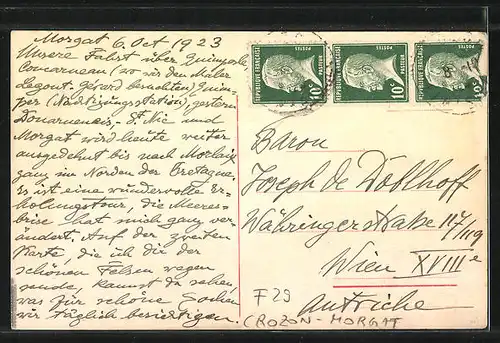 Morgat 6. Oct 1923
Unsere Fahrt über Quimperle
Concarneau (wo wir den Maler
Legout-Gérard besuchten) Quim-
per (Nächtigungsstation), gestern
Douarnenez - St. Nic und
Morgat wird heute weiter
ausgedehnt bis nach Morlaix
ganz im Norden der Bretagne.
Es ist eine wundervolle Er-
holungstour, die Meeres-
brise hat mich ganz ver-
ändert. Auf der zweiten
Karte, die ich dir der
schönen Felsen wegen
sende, kannst du sehen,
was für schöne Sachen
wir täglich besichtigen.
REPUBLIQUE FRANÇAISE
POSTES
10c
REPUBLIQUE FRANÇAISE
POSTES
10c
REPUBLIQUE FRANÇAISE
POSTES
10c
Baron
Joseph de Doblhoff
Währingerstraße 117/119
Wien XVIIIe
Autriche
F 29
(CROZON-MORGAT